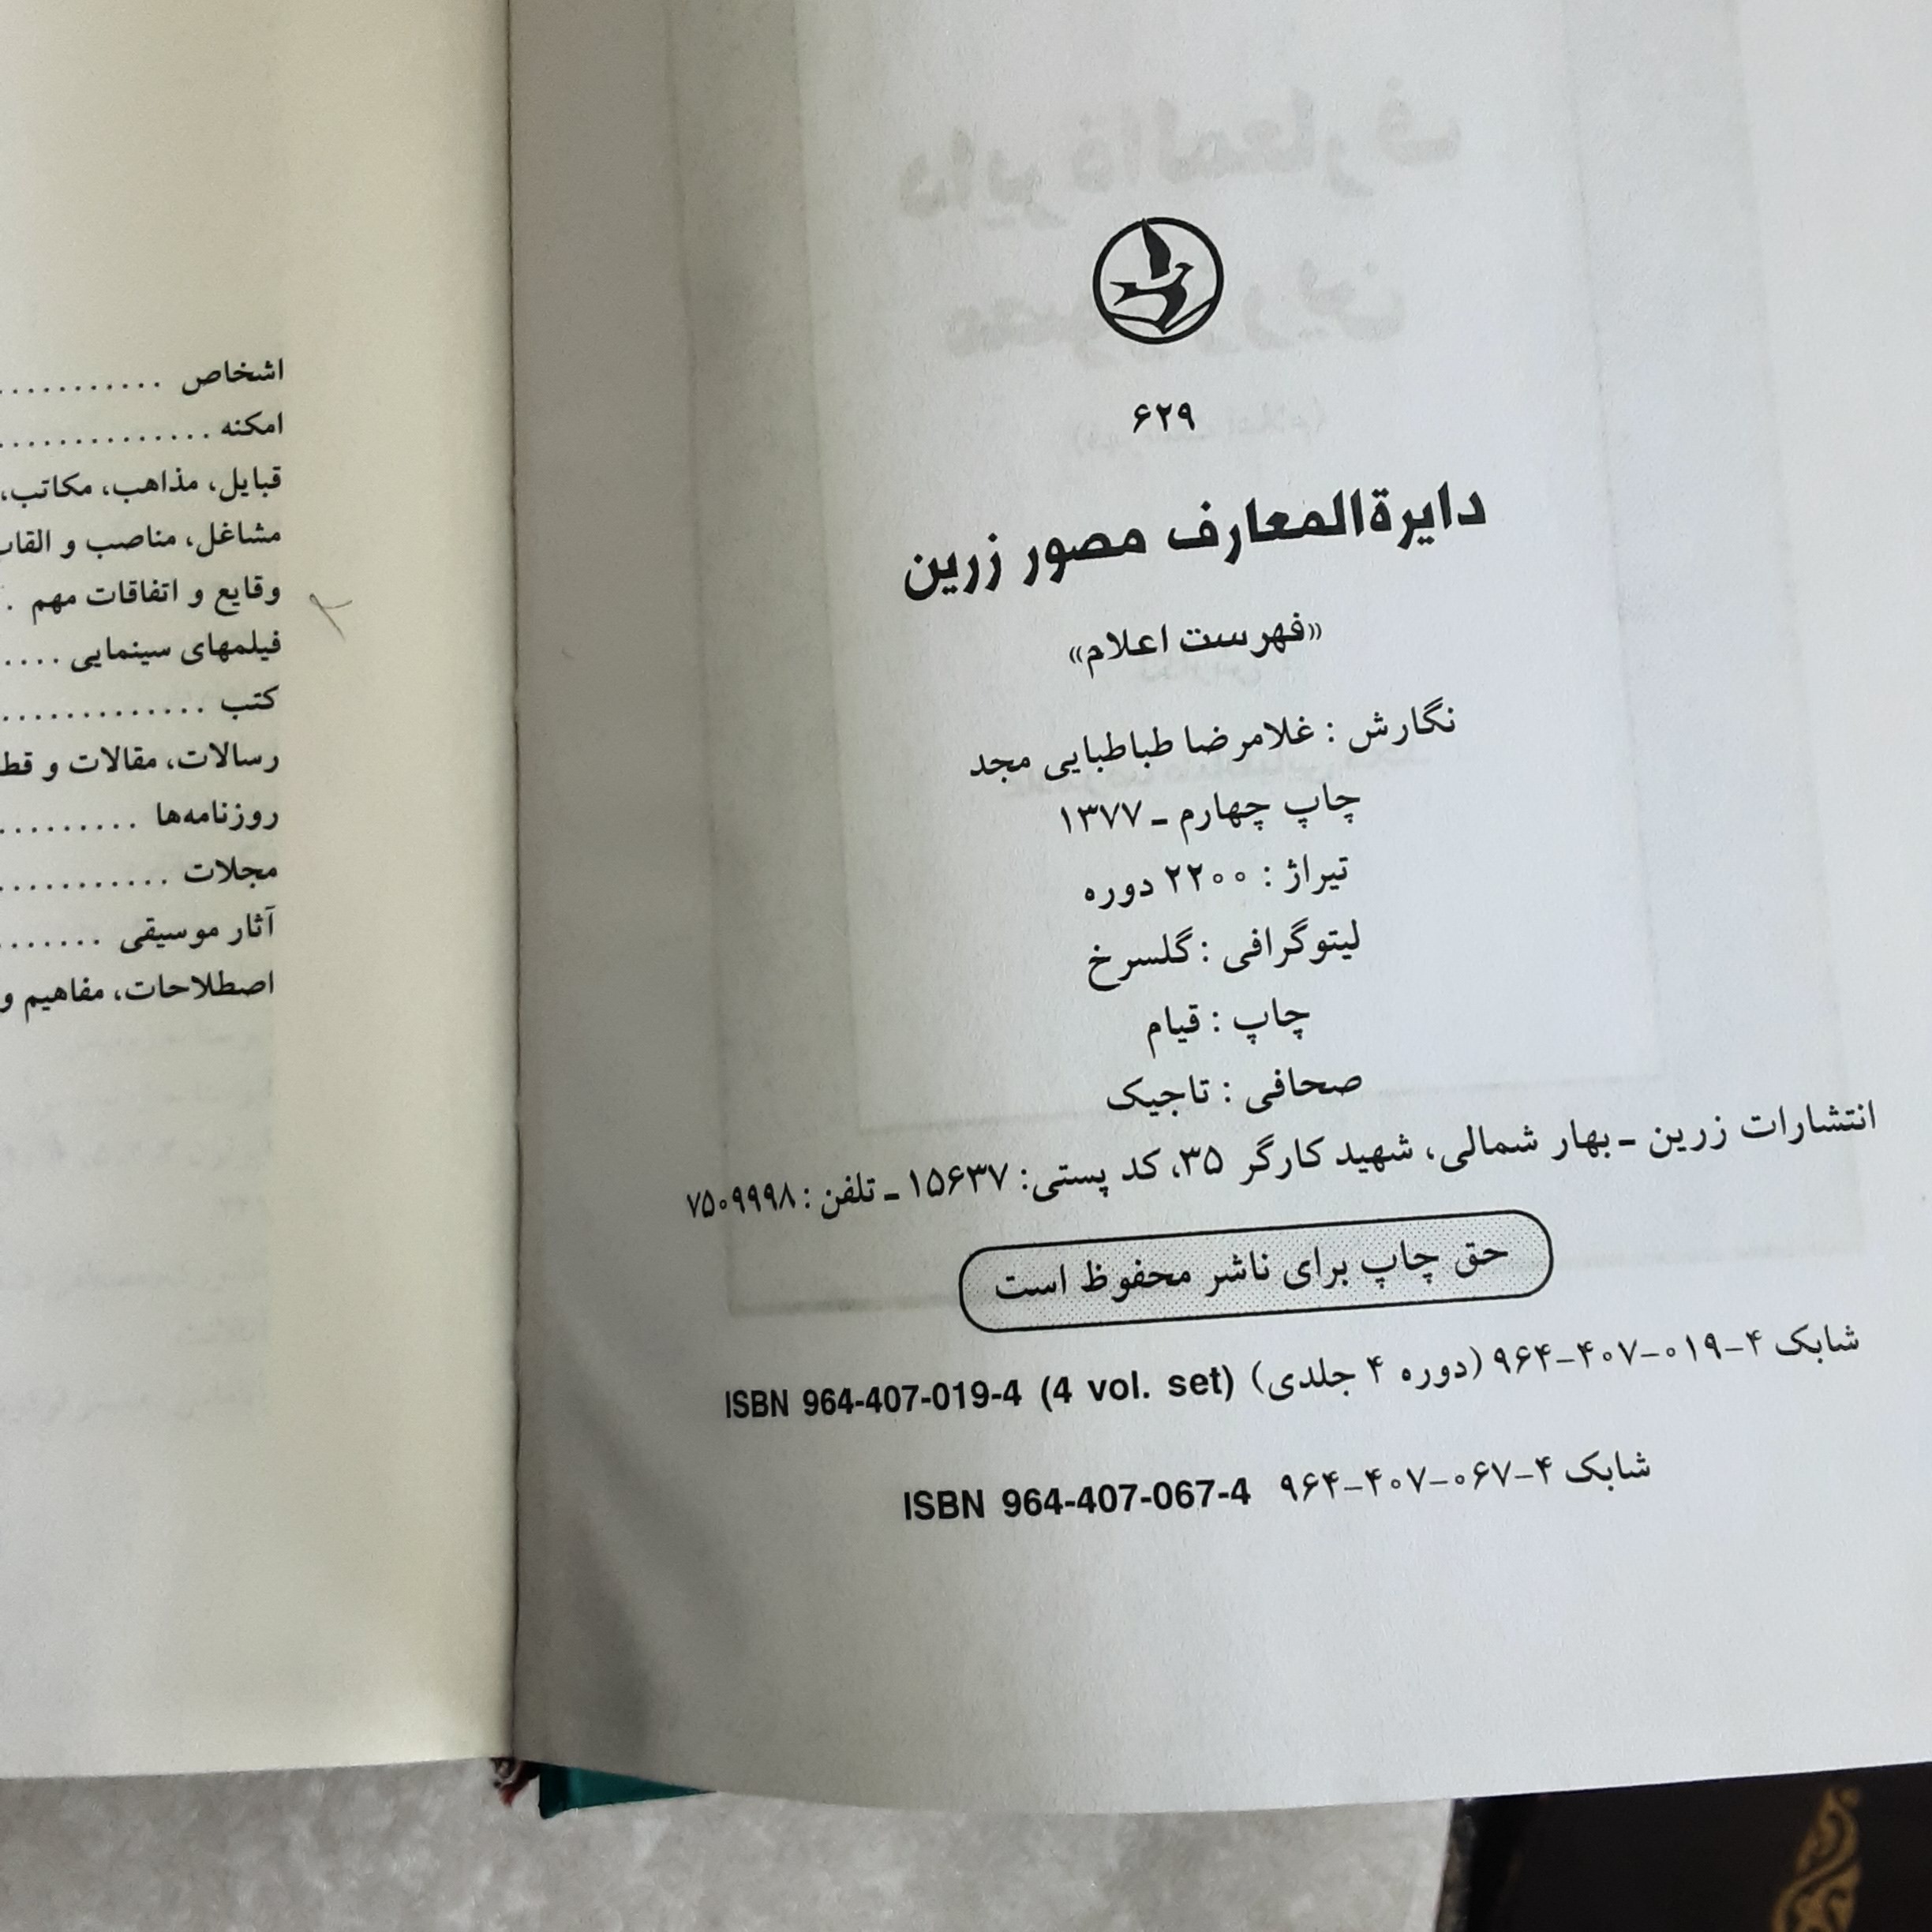 ۶۲۹
دایرةالمعارف مصور زرین
«فهرست اعلام»
نگارش : غلامرضا طباطبایی مجد
چاپ چهارم ـ ۱۳۷۷
تیراژ : ۲۲۰۰ دوره
لیتوگرافی : گلسرخ
چاپ : قیام
صحافی : تاجیک
انتشارات زرین ـ بهار شمالی، شهید کارگر ۳۵، کد پستی: ۱۵۶۳۷ ـ تلفن : ۷۵۰۹۹۹۸
حق چاپ برای ناشر محفوظ است
شابک ۴-۰۱۹-۴۰۷-۹۶۴ (دوره ۴ جلدی) ISBN 964-407-019-4 (4 vol. set)
شابک ۴-۰۶۷-۴۰۷-۹۶۴ ISBN 964-407-067-4
اشخاص ...........
امکنه ..............
قبایل، مذاهب، مکاتب،
مشاغل، مناصب و القاب
وقایع و اتفاقات مهم ..
فیلمهای سینمایی ....
کتب .............
رسالات، مقالات و
روزنامه‌ها .........
مجلات ...........
آثار موسیقی .......
اصطلاحات، مفاهیم و